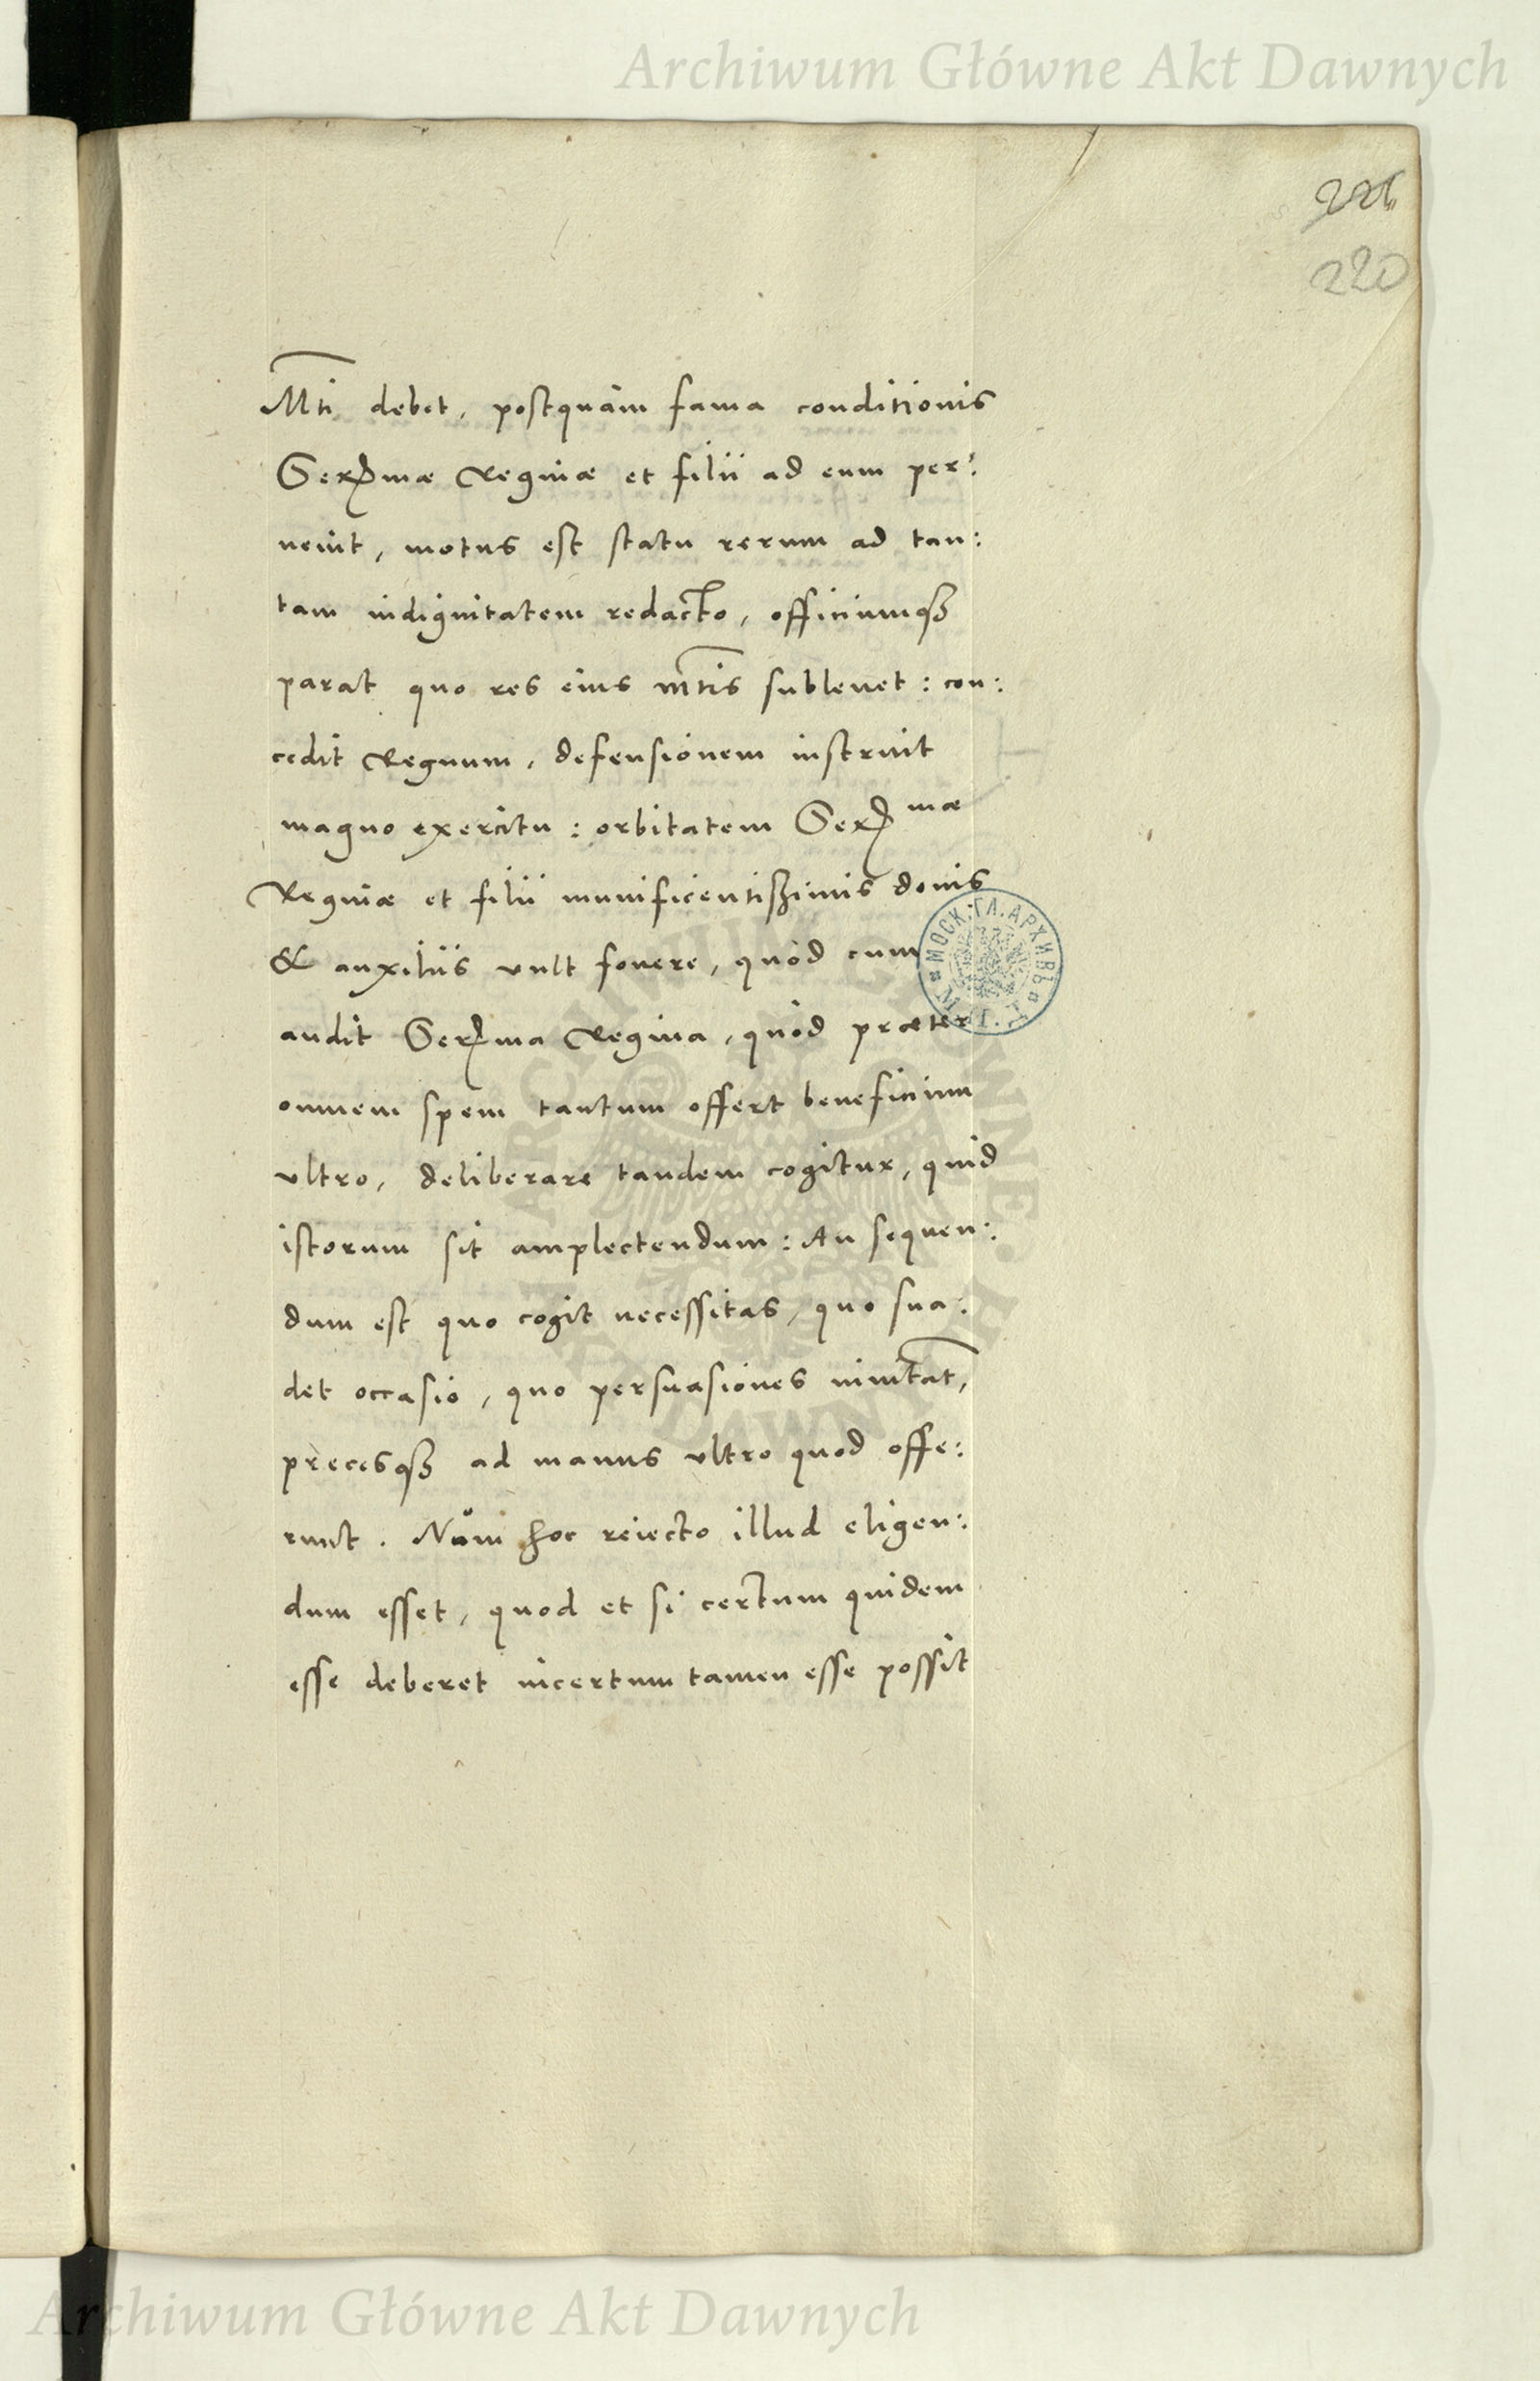 Archiwum Główne Akt Dawnych
220
Mti debet, postquàm fama conditionis
Serᵐᵃᵉ Reginæ et filii ad eum per:
uenit, motus est statu rerum ad tan:
tam indignitatem redacto, officiumqꝫ
parat quo res eius mtis subleuet: con:
cedit Regnum, defensionem instruit
magno exercitu: orbitatem Serᵐᵃᵉ
Reginæ et filii munificentißimis donis
& auxiliis vult fouere, quòd cum
audit Serma Regina, quòd præter
omnem spem tantum offert beneficium
vltro, deliberare tandem cogitur, quid
istorum sit amplectendum: An sequen:
dum est quo cogit necessitas, quo sua:
det occasio, quo persuasiones inuitat,
precesqꝫ ad manus vltro quod offe:
runt. Num hoc reiecto illud eligen:
dum esset, quod et si certum quidem
esse deberet incertum tamen esse possit
МОСК. ГЛ. АРХИВЪ
ARCHIWUM GŁÓWNE AKT DAWNYCH
Archiwum Główne Akt Dawnych